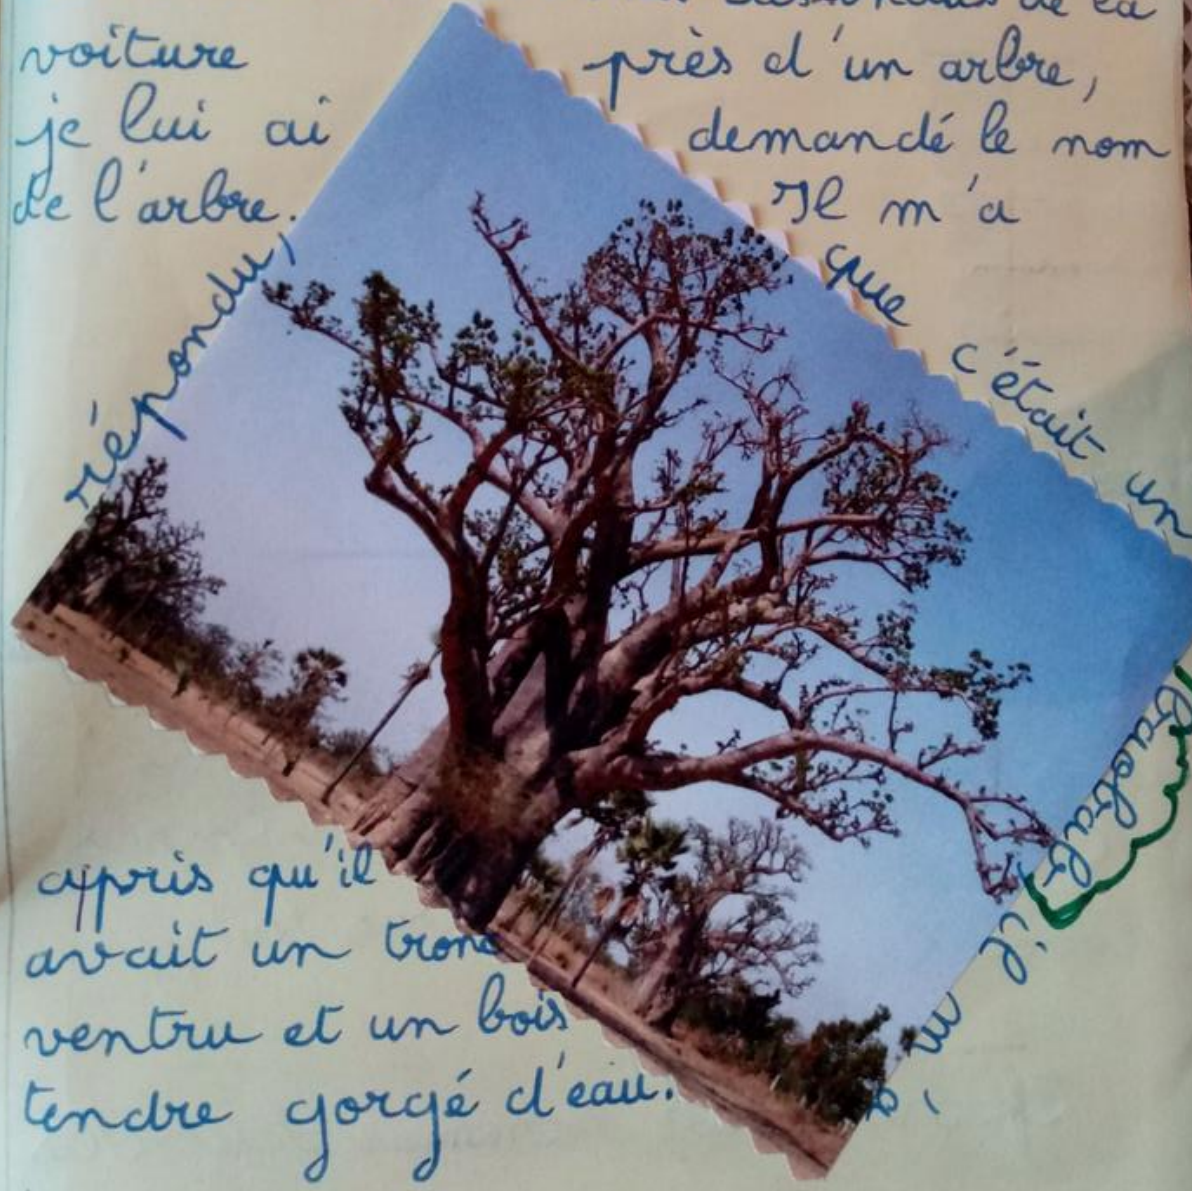 de la
voiture près d'un arbre,
je lui ai demandé le nom
de l'arbre. Il m'a
répondu, que c'était un
baobab il m'a
appris qu'il
avait un tronc
ventru et un bois
tendre gorgé d'eau.